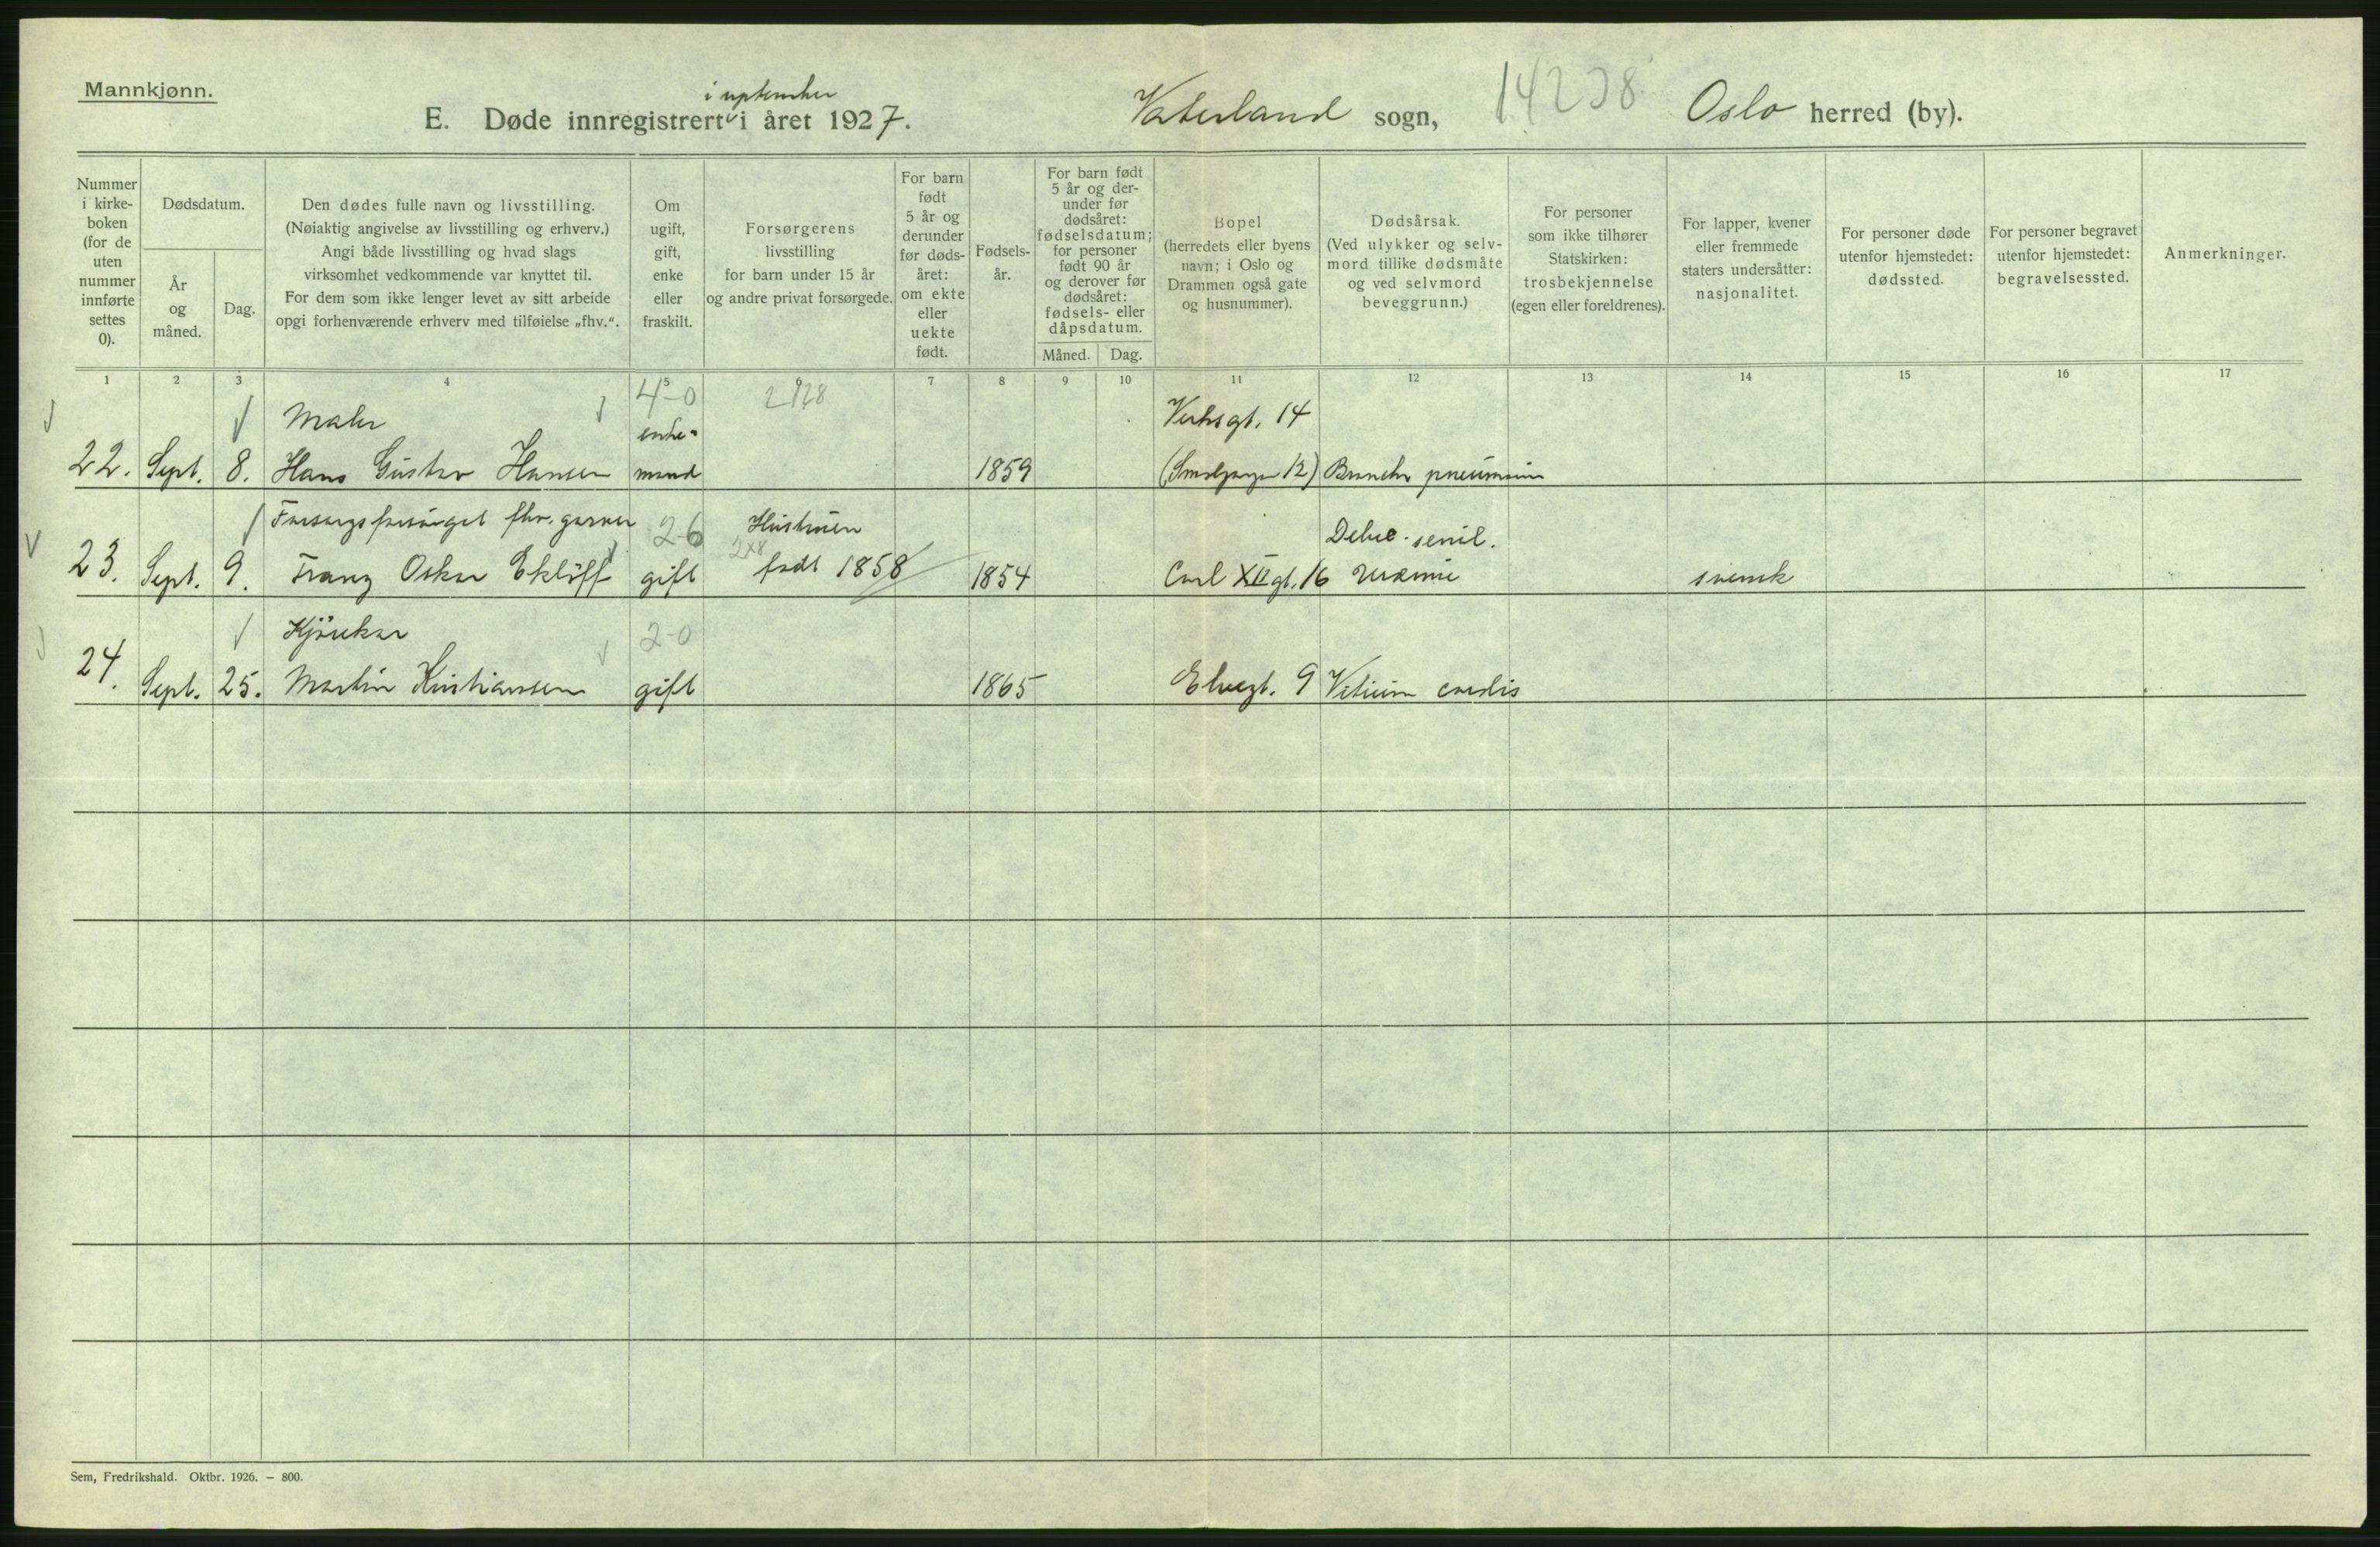 Mannkjønn.
i september
E. Døde innregistrert i året 1927. Vaterland sogn, 14238 Oslo herred (by).
Nummer i kirke-boken (for de uten nummer innførte settes 0).
Dødsdatum.
År og måned.
Dag.
Den dødes fulle navn og livsstilling.
(Nøiaktig angivelse av livsstilling og erhverv.)
Angi både livsstilling og hvad slags
virksomhet vedkommende var knyttet til.
For dem som ikke lenger levet av sitt arbeide
opgi forhenværende erhverv med tilføielse „fhv.“.
Om ugift, gift, enke eller fraskilt.
Forsørgerens
livsstilling
for barn under 15 år
og andre privat forsørgede.
For barn født 5 år og derunder før døds-året: om ekte eller uekte født.
Fødsels-år.
For barn født 5 år og der-under før dødsåret: fødselsdatum; for personer født 90 år og derover før dødsåret: fødsels- eller dåpsdatum.
Måned. Dag.
Bopel
(herredets eller byens
navn; i Oslo og
Drammen også gate
og husnummer).
Dødsårsak.
(Ved ulykker og selv-
mord tillike dødsmåte
og ved selvmord
beveggrunn.)
For personer
som ikke tilhører
Statskirken:
trosbekjennelse
(egen eller foreldrenes).
For lapper, kvener
eller fremmede
staters undersåtter:
nasjonalitet.
For personer døde
utenfor hjemstedet:
dødssted.
For personer begravet
utenfor hjemstedet:
begravelsessted.
Anmerkninger.
1 2 3 4 5 7 8 9 10 11 12 13 14 15 16 17
4-0
Maler enke- Verksgt. 14
22. Sept. 8. Hans Gustav Hansen mand 1859 12) Broncho pneumoni
Forsorgsforsørget fhv. garver 2-6 Hustruen Debil. senil.
23. Sept. 9. Franz Oskar Eklöff gift født 1858 1854 Carl XII gt. 16 Uræmie svensk
Kjørekar 2-0
24. Sept. 25. Martin Kristiansen gift 1865 Elvegt. 9 Vitium cordis
Sem, Fredrikshald. Oktbr. 1926. — 800.